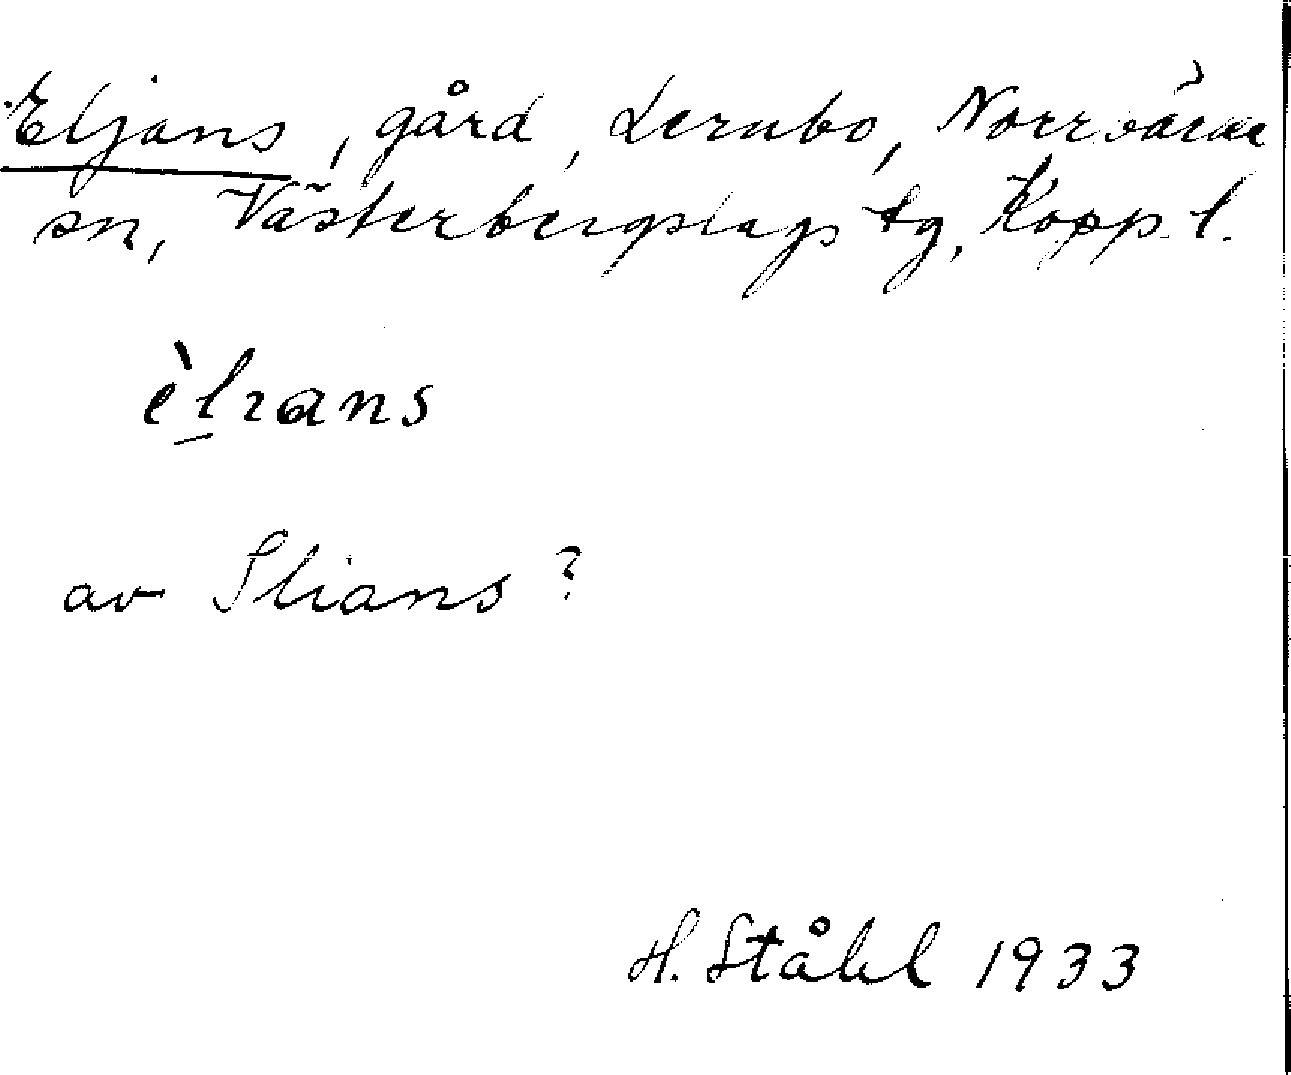 Eljans, gård, Lernbo, Norrbärke
sn, Västerbergslags tg, Kopp. l.
èlians
av Elians?
H. Ståhl 1933